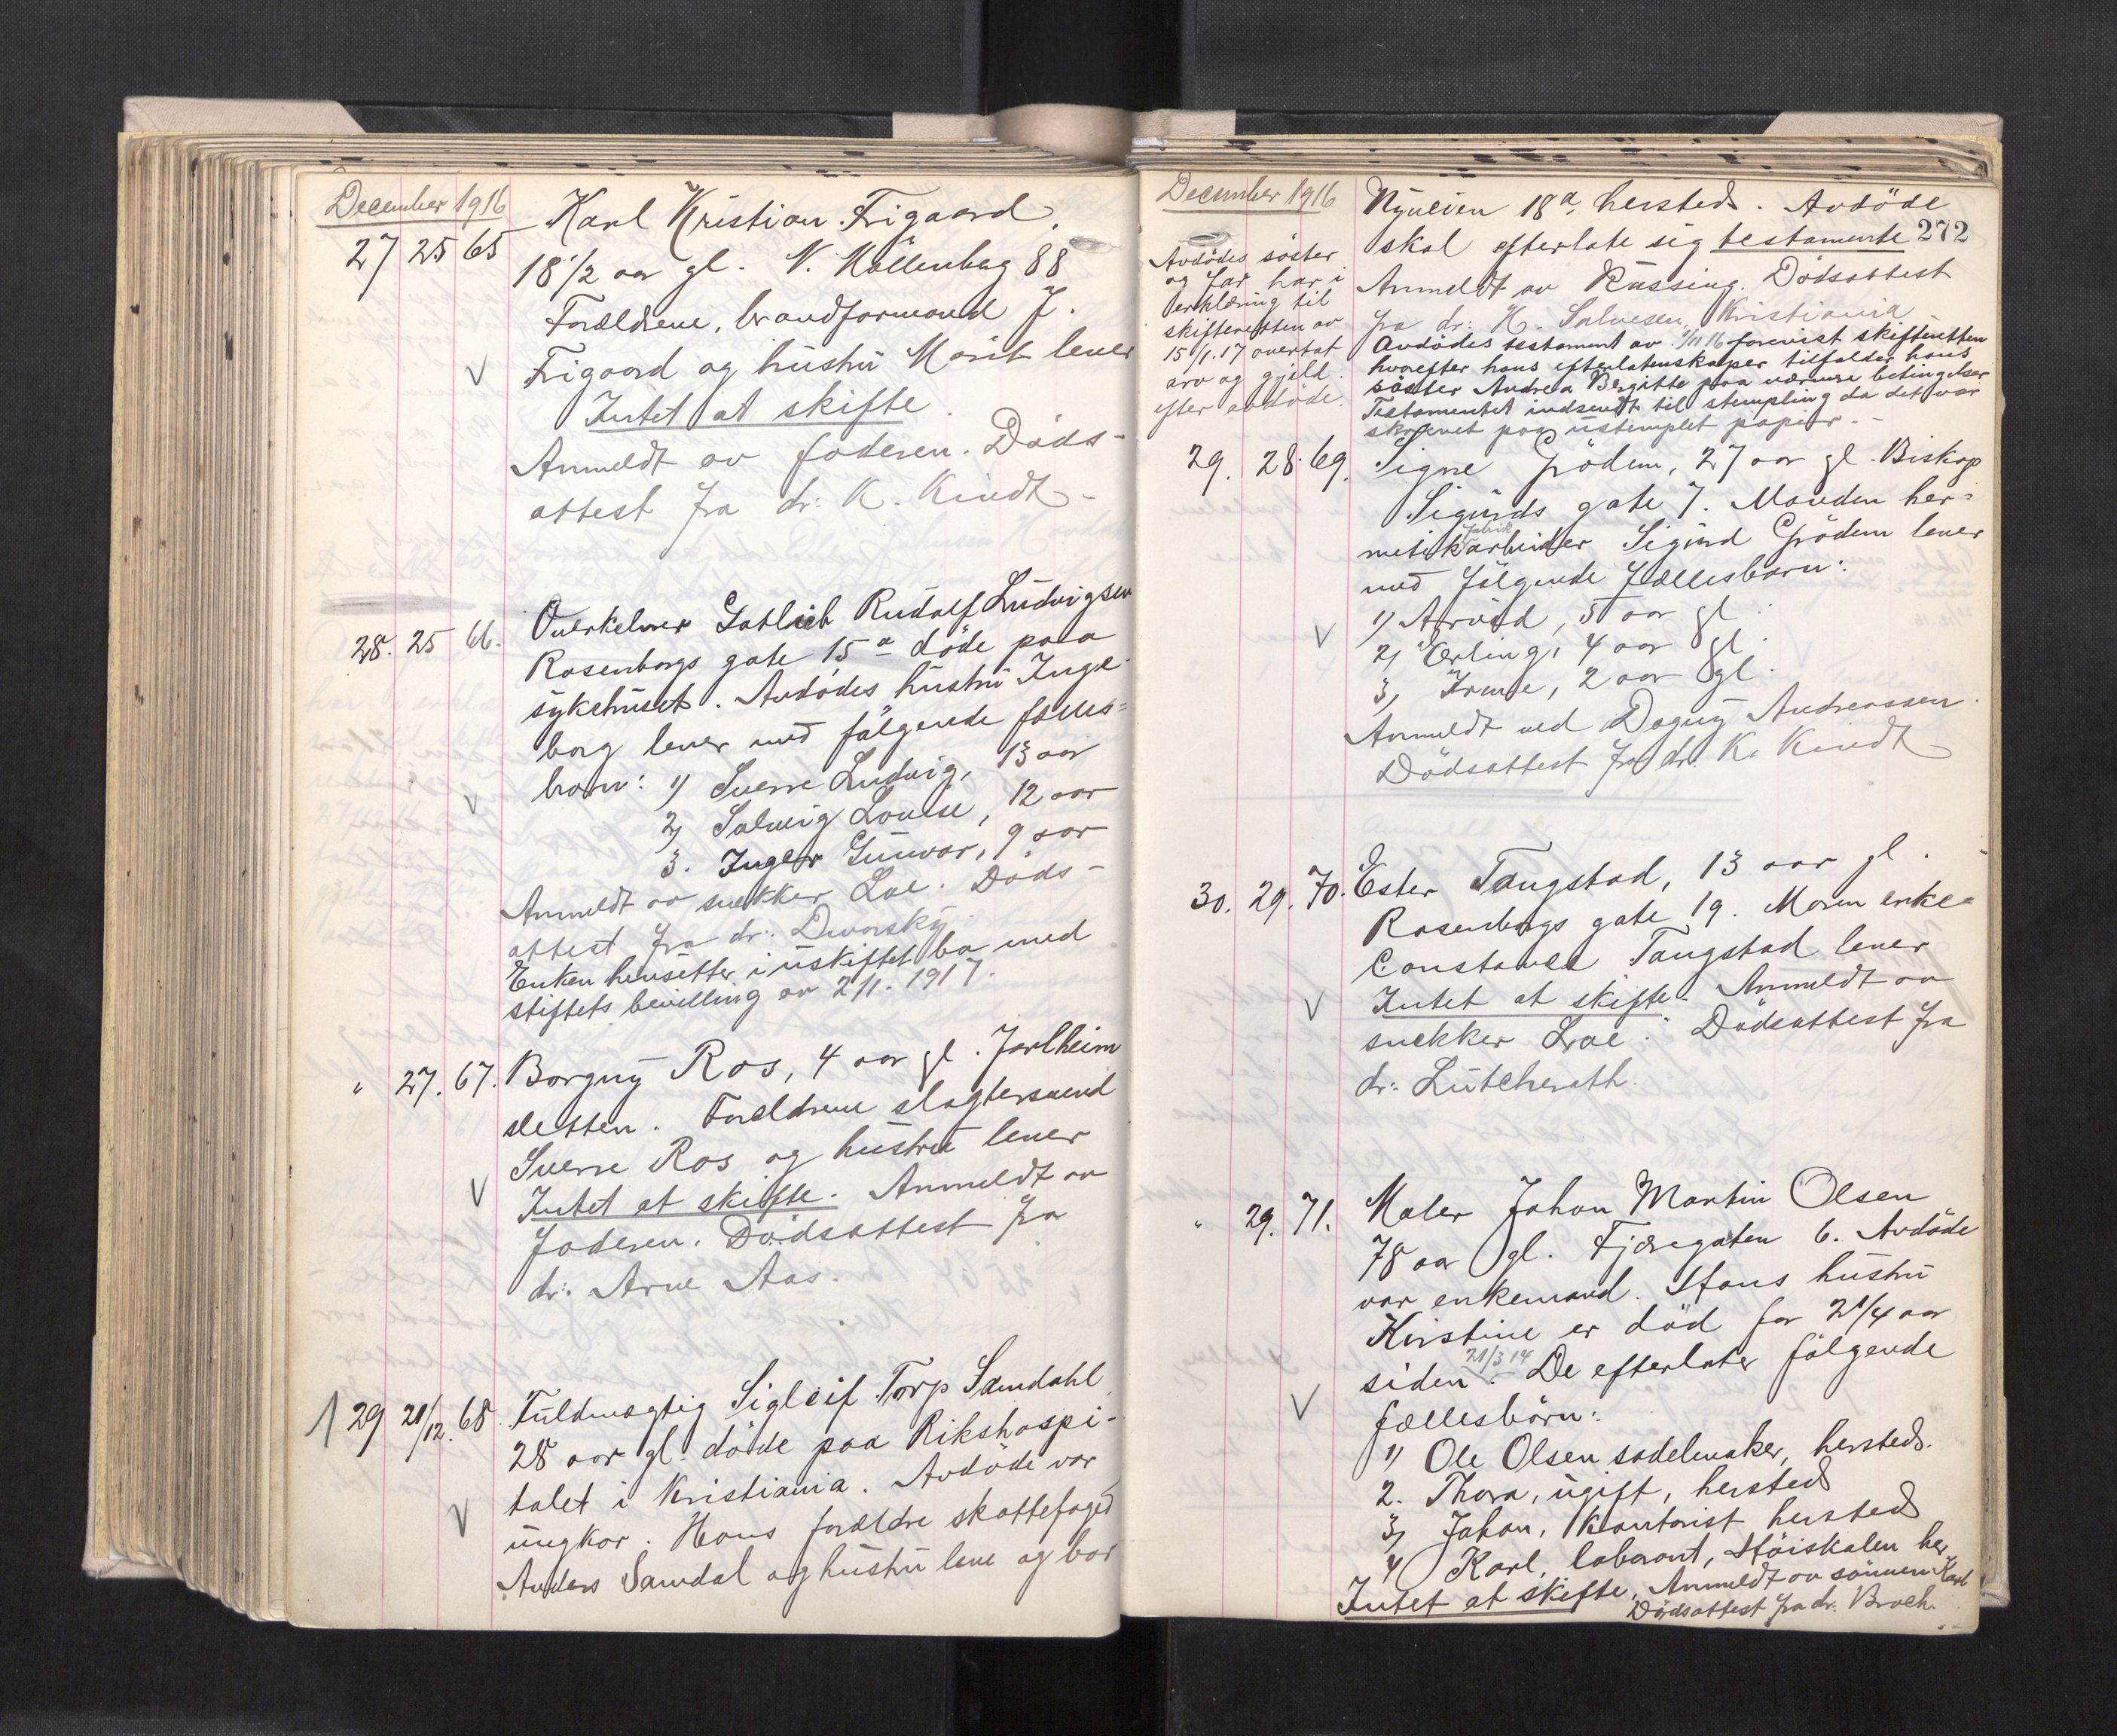 December 1916
27 25 65 Karl Kristian Frigaard,
18 1/2 aar gl. N. Möllenberg 88
Forældrene, brandformand J.
Frigaard og hustru Marit lever
Intet at skifte.
Anmeldt av faderen. Döds-
attest fra dr: K. Kindt -
28. 25 66. Overkelner Gotlieb Rudolf Ludvigsen
Rosenborgs gate 15a döde paa
sykehuset. Avdödes hustru Inge-
borg lever med fölgende felles=
barn: 1) Sverre Ludvig, 13 aar
2) Solveig Louise, 12 aar
3. Inger Gunvor, 9 aar
Anmeldt av snekker Loe. Döds-
attest fra dr: Dworsky.
Enken hensitter i uskiftet bo med
stiftets bevilling av 2/1. 1917.
" 27. 67. Borgny Ros, 4 aar gl. Jarlheim
sletten. Foreldrene slagtersvend
Sverre Ros og hustru lever
Intet at skifte. Anmeldt av
faderen. Dödsattest fra
dr: Arne Aas.
29 21/12. 68. Fuldmægtig Sigleif Torp Samdahl,
28 aar gl. döde paa Rikshospi-
talet i Kristiania. Avdöde var
ungkar. Hans foreldre skattefoged
Anders Samdal og hustru leve og bor
December 1916
Nyveien 18a, hersteds. Avdöde
skal efterlate sig testamente 272
Anmeldt av Rüssing. Dödsattest
fra dr: H. Salvesen, Kristiania
Avdödes testament av 1/11 16 forevist skifteretten
hvorefter hans efterlatenskaper tilfalder hans
söster Andrea Birgitte paa nærmere betingelser
Testamentet indsendt til stempling da det var
skrevet paa ustemplet papir. -
Avdödes söster
og far har i
erklæring til
skifteretten av
15/1.17 overtat
arv og gjeld
efter avdöde.
29. 28. 69. Signe Grödem, 27 aar gl. Biskop
Sigurds gate 7. Manden her=
metikfabrikarbeider Sigurd Grödem lever
med fölgende fællesbarn:
1) Arvid, 5 aar gl.
2) Erling, 4 aar gl.
3) Irene, 2 aar gl.
Anmeldt ved Dagny Andreassen.
Dödsattest fra dr. K. Kindt
30. 29. 70. Ester Tangstad, 13 aar gl.
Rosenborgs gate 19. Moren enke
Constance Tangstad lever
Intet at skifte. Anmeldt av
snekker Loe. Dödsattest fra
dr: Lütcherath.
" 29. 71. Maler Johan Martin Olsen
78 aar gl. Fjæregaten 6. Avdöde
var enkemand. Hans hustru
Kirstine er död for 2 1/4 aar
siden 21/3 14. De efterlater fölgende
fællesbörn:
1) Ole Olsen sadelmaker, hersteds.
2. Thora, ugift, hersteds
3) Johan, kontorist hersteds
4) Karl, laborant, Höiskolen her
Intet at skifte. Anmeldt av sönnen Karl
Dödsattest fra dr. Broch.